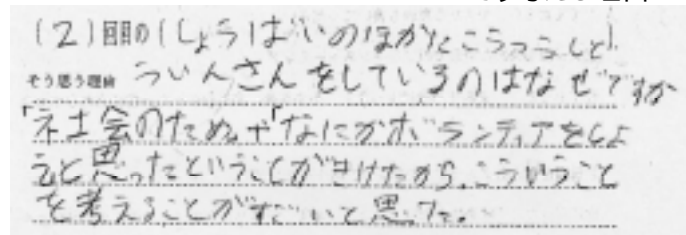 (2)回目の(しょうばいのほかにこうつうしど)
そう思う理由 ういんさんをしているのはなぜですか
「社会のため。や「なにかボランティアをしよ
うと思ったということがきけたから、こういうこと
を考えることがすごいと思った。